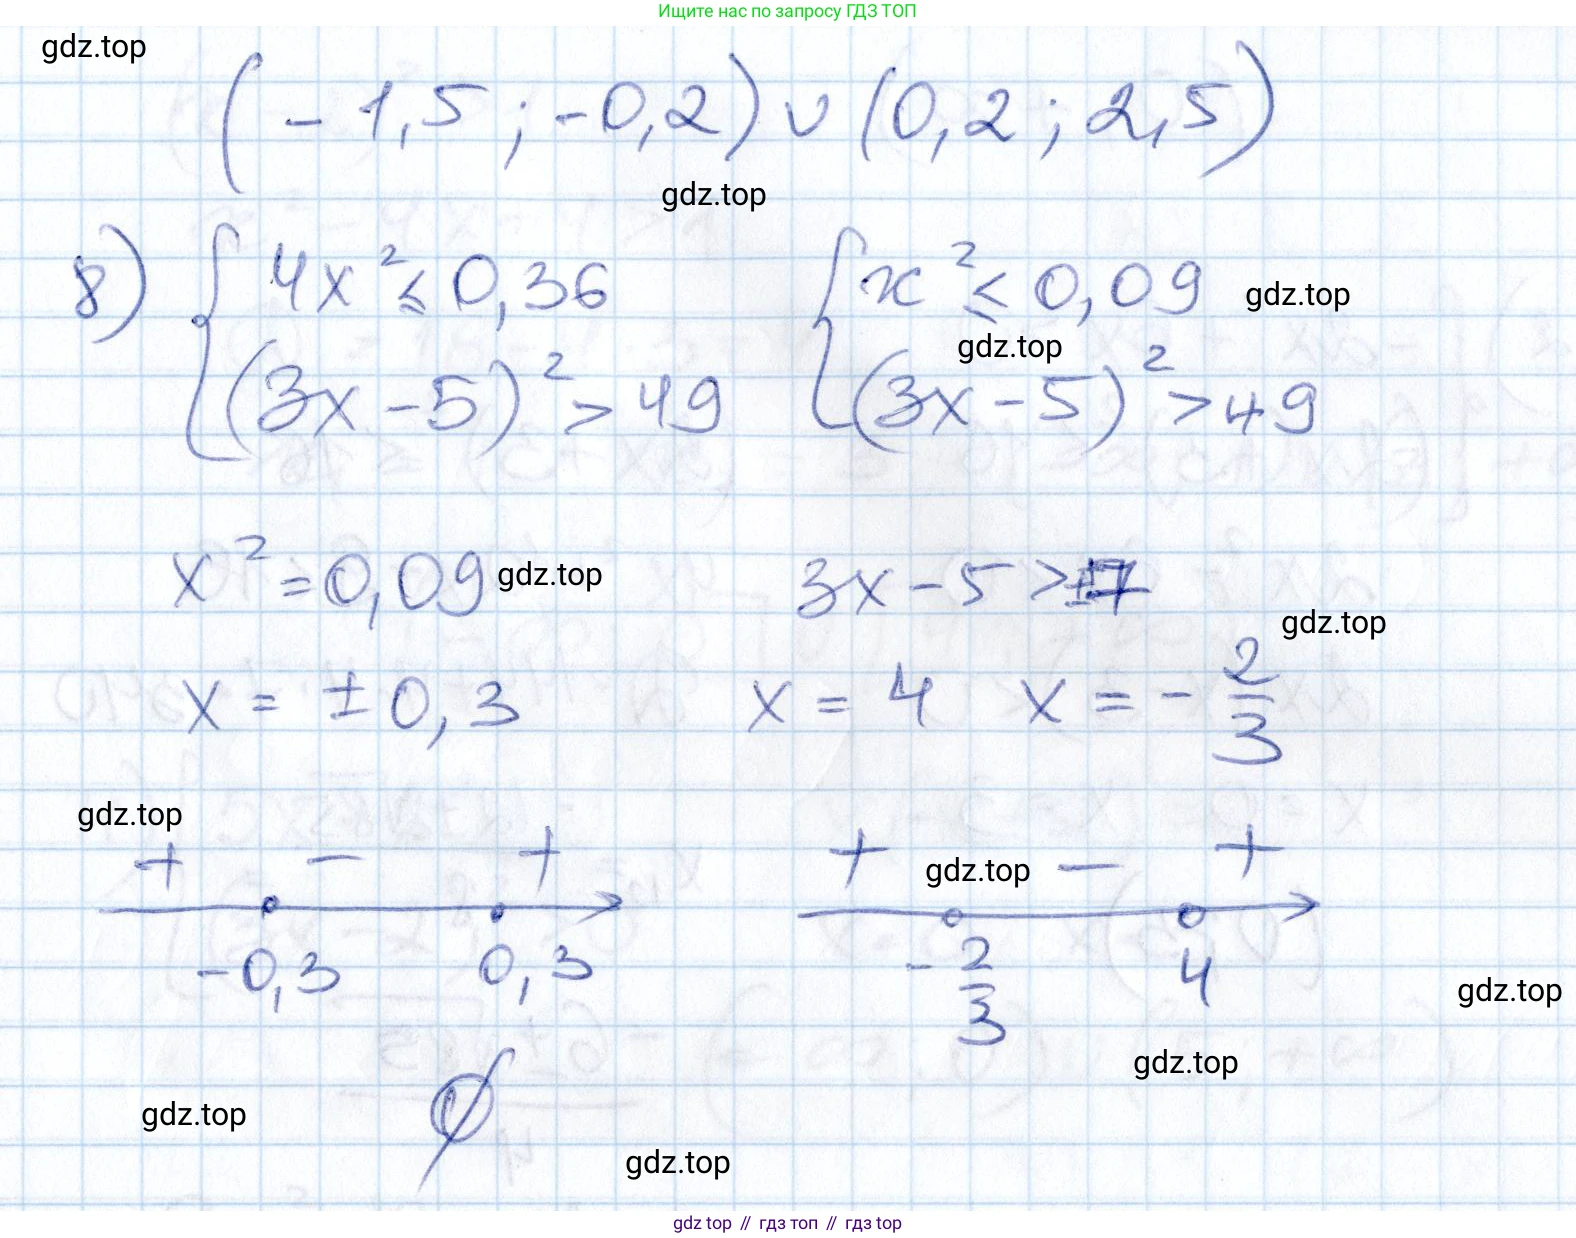 Ищите нас по запросу ГДЗ ТОП
gdz.top
(-1,5; -0,2) ∪ (0,2; 2,5)
gdz.top
8) { 4x² ≤ 0,36 { x² ≤ 0,09 gdz.top
gdz.top
(3x-5)² > 49 (3x-5)² > 49
x² = 0,09 gdz.top 3x-5 > ±7
gdz.top
x = ±0,3 x = 4 x = -2/3
gdz.top
+ - + + gdz.top - +
-0,3 0,3 -2/3 4
gdz.top
gdz.top
∅
gdz.top
gdz.top
gdz top // гдз топ // гдз top